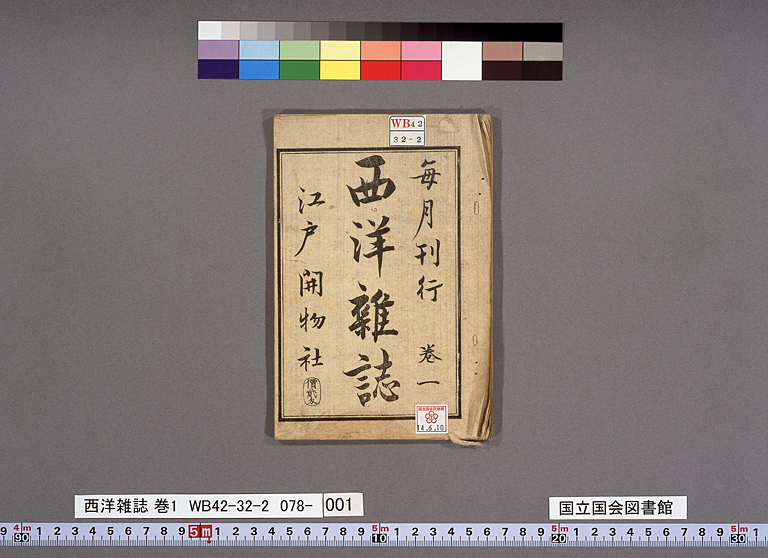 WB42
32-2
每月刊行 卷一
西洋雜誌
江戸 開物社
價貳匁
国立国会図書館
14.6.10
西洋雑誌 巻1 WB42-32-2 078- 001
国立国会図書館
9 4m 90 1 2 3 4 5 6 7 8 9 5m 1 2 3 4 5 6 7 8 9 5m 10 1 2 3 4 5 6 7 8 9 5m 20 1 2 3 4 5 6 7 8 9 5m 30 1